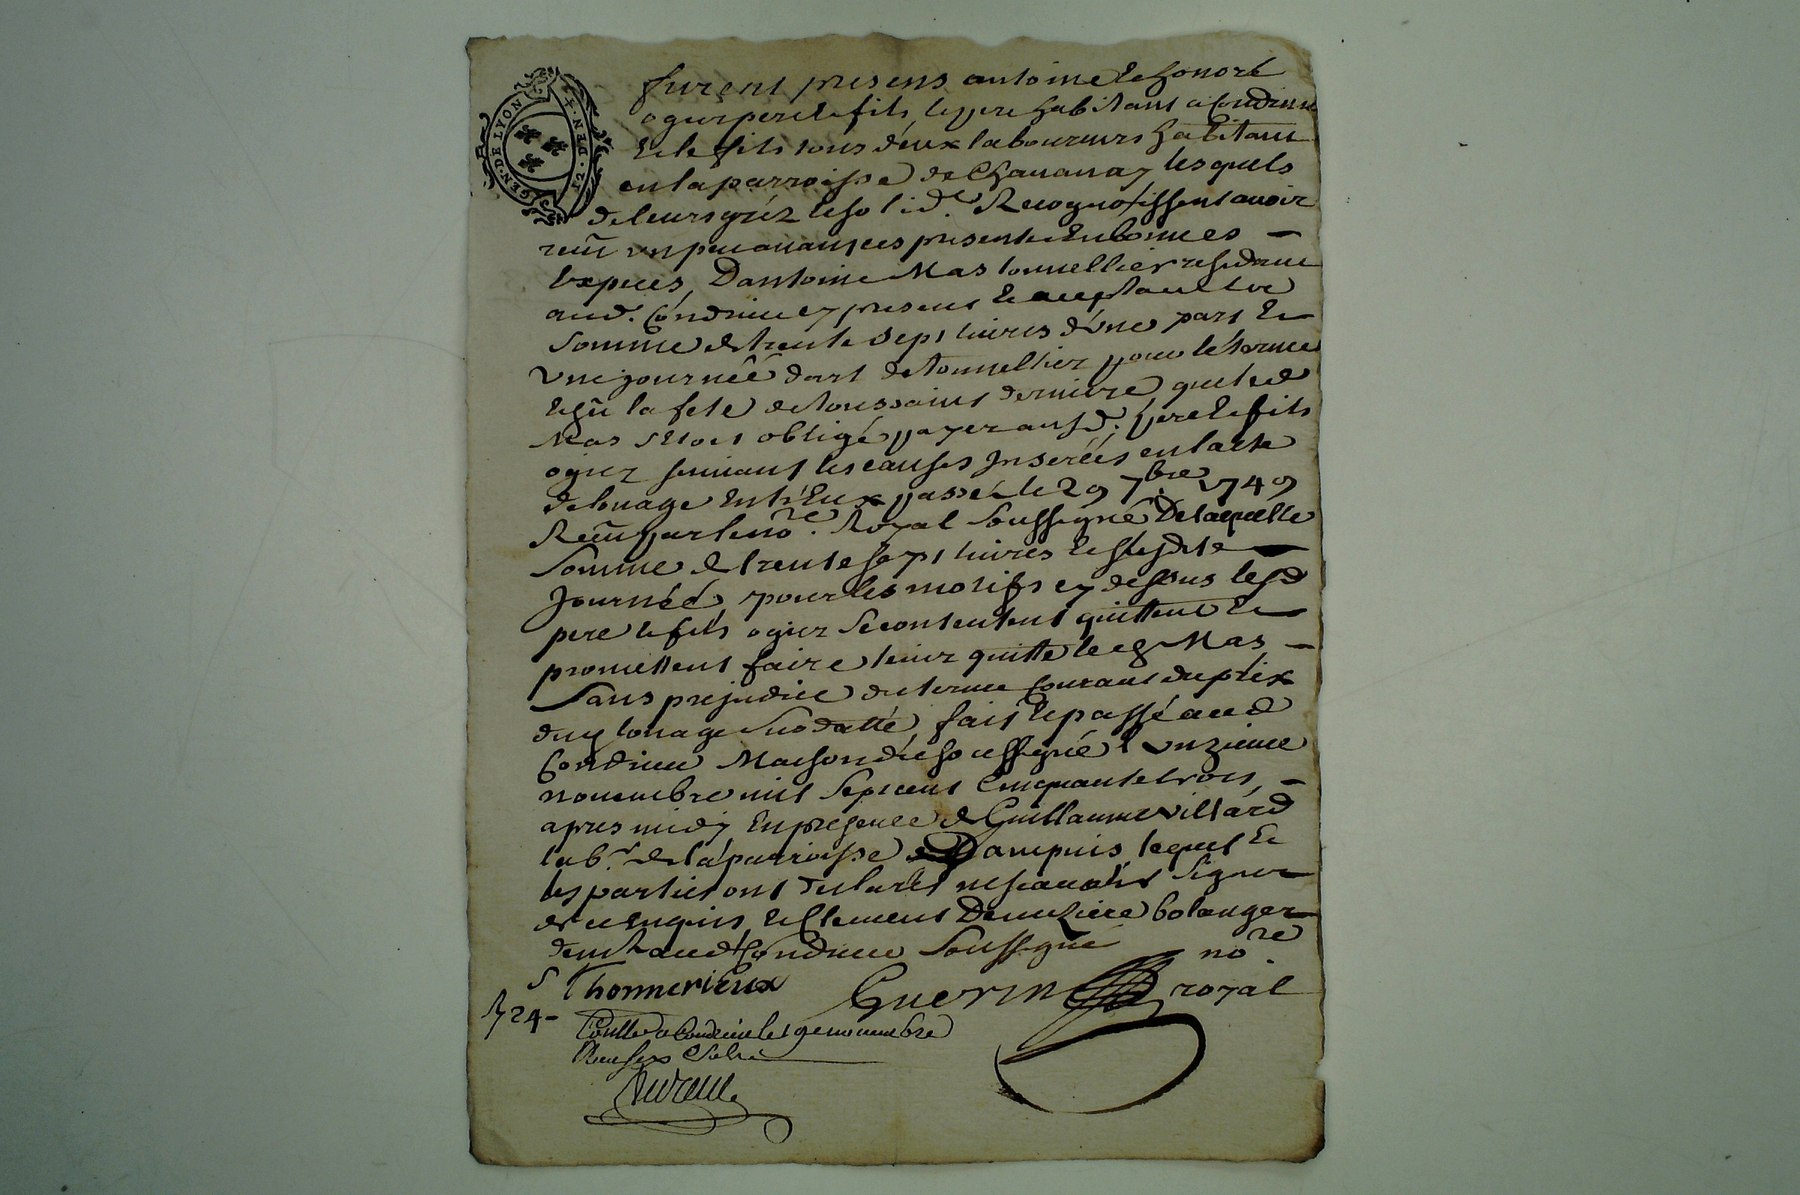 GEN·DE LYON
12·DEN·
furent presens antoine et honoré
ogier pere et fils, le pere habitant a Condrieu
et le fils tous deux laboureurs habitant
en la parroisse de Chavanay lesquels
de leurs gréz et solid. Recognoissent avoir
receu un peu avant ces presentes en bonnes
Especes, D'antoine Mas tonnellier residant
aud. Condrieu cy present et acceptant la
somme de trente sept livres d'une part et
une journéé d'art de tonnellier pour le terme
echu la fete de toussaint derniere que led
Mas s'etoit obligé payer ausd. pere et fils
ogier suivant les causes Inserées en l'acte
de louage Entr'Eux passé le 29 7bre 1749
Receu par le nore. Royal soussigné De laquelle
somme de trente sept livres et susdite
Journéé pour les motifs cy dessus lesd
pere et fils ogier se contentent quittent et
promettent faire tenir quitte led Mas
sans prejudice du terme Courant du prix
dud louage susdatté, fait et passé aud
Condrieu Maison du soussigné l'unzieme
novembre mil sept cent cinquante trois
apres midy En presence de Guillaume villard
labr. de la parroisse de Dampuis, lequel et
les parties ont declaré ne scavoir signer
de ce enquis, et Clement Demeziere bolanger
demt. aud Condrieu soussigné
Thonnerieux
Guerin nore. royal
24
Conllé a Condrieu le 19e novembre
Receu six s